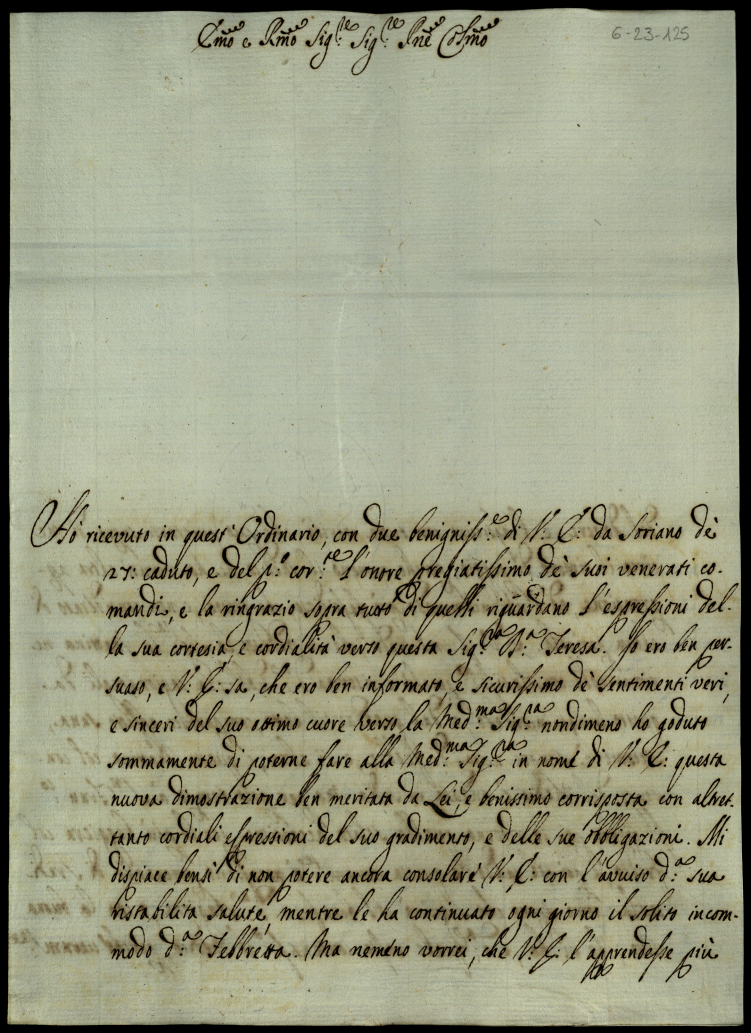 Emo e Rmo Sig.re Sig.re Pne Colmo
6-23-125
Hò ricevuto in quest' Ordinario, con due benigniss.e di V: E: da Soriano dè
27: caduto, e del p.o cor.te l'onore pregiatissimo dè suoi venerati co-
mandi, e la ringrazio sopra tutto di quelli riguardano l'espressioni del-
la sua cortesia, e cordialità verso questa Sig.ra D.a Teresa. Io ero ben per-
suaso, e V: E: sa, che ero ben informato, e sicurissimo dè sentimenti veri,
e sinceri del suo ottimo cuore verso la Med.ma Sig.ra nondimeno ho goduto
sommamente di poterne fare alla Med.ma Sig.ra in nome di V: E: questa
nuova dimostrazione ben meritata da Lei, e benissimo corrisposta con altret-
tanto cordiali espressioni del suo gradimento, e delle sue obbligazioni. Mi
dispiace bensì di non potere ancora consolare V: E: con l'avviso d.a sua
ristabilita salute, mentre le ha continuato ogni giorno il solito incom-
modo d.a Febbretta. Ma nemeno vorrei, che V: E: l'apprendesse più